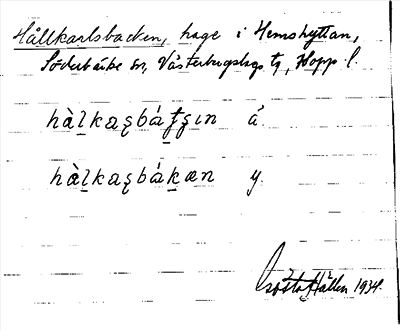 Hållkarlsbacken, hage i Hemshyttan,
Söderbärke sn, Västerbergslags tg, Kopp. l.
hàlkaʂbátʂın å
hàlkaʂbákæn y.
Gösta Hállen 1934.